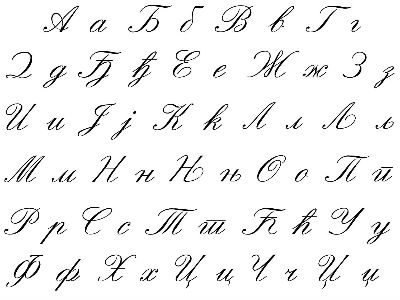 А а Б б В в Г г
Д д Ђ ђ Е е Ж ж З з
И и Ј ј К к Л л Љ љ
М м Н н Њ њ О о П п
Р р С с Т т Ћ ћ У у
Ф ф Х х Ц ц Ч ч Џ џ